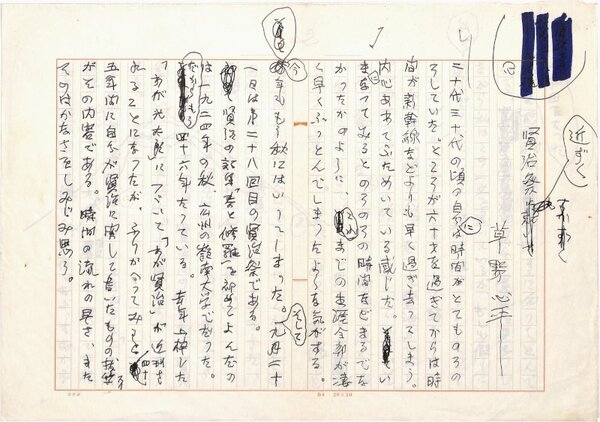 近ずく
賢治祭
草野心平
二十代三十代の頃の自分には時間がとてものろの
ろしていた。ところが六十才を過ぎてからは時
間が新幹線などよりも早く過ぎ去ってしまう。
内心あわてふためいている感じだ。
なってみるとのろのろの時間をどまるでな
かったかのように、それまでの生涯全部が凄
く早くふっとんでしまったような気がする。
今年ももう秋にはいってしまった。そして九月二十
一日は第二十八回目の賢治祭である。
賢治の詩集「春と修羅」を初めてよんだの
は一九二四年の秋、広州の嶺南大学でだった。
だからもう四十六年たっている。去年上梓した
「わが光太郎」につづいて「わが賢治」が近刊さ
れることになったが、ふりかえってみると四十
五年間に自分が賢治に関して書いたものの抜萃
がその内容である。時間の流れの早さ、また
そのはかなさをしみじみ思う。
20×10